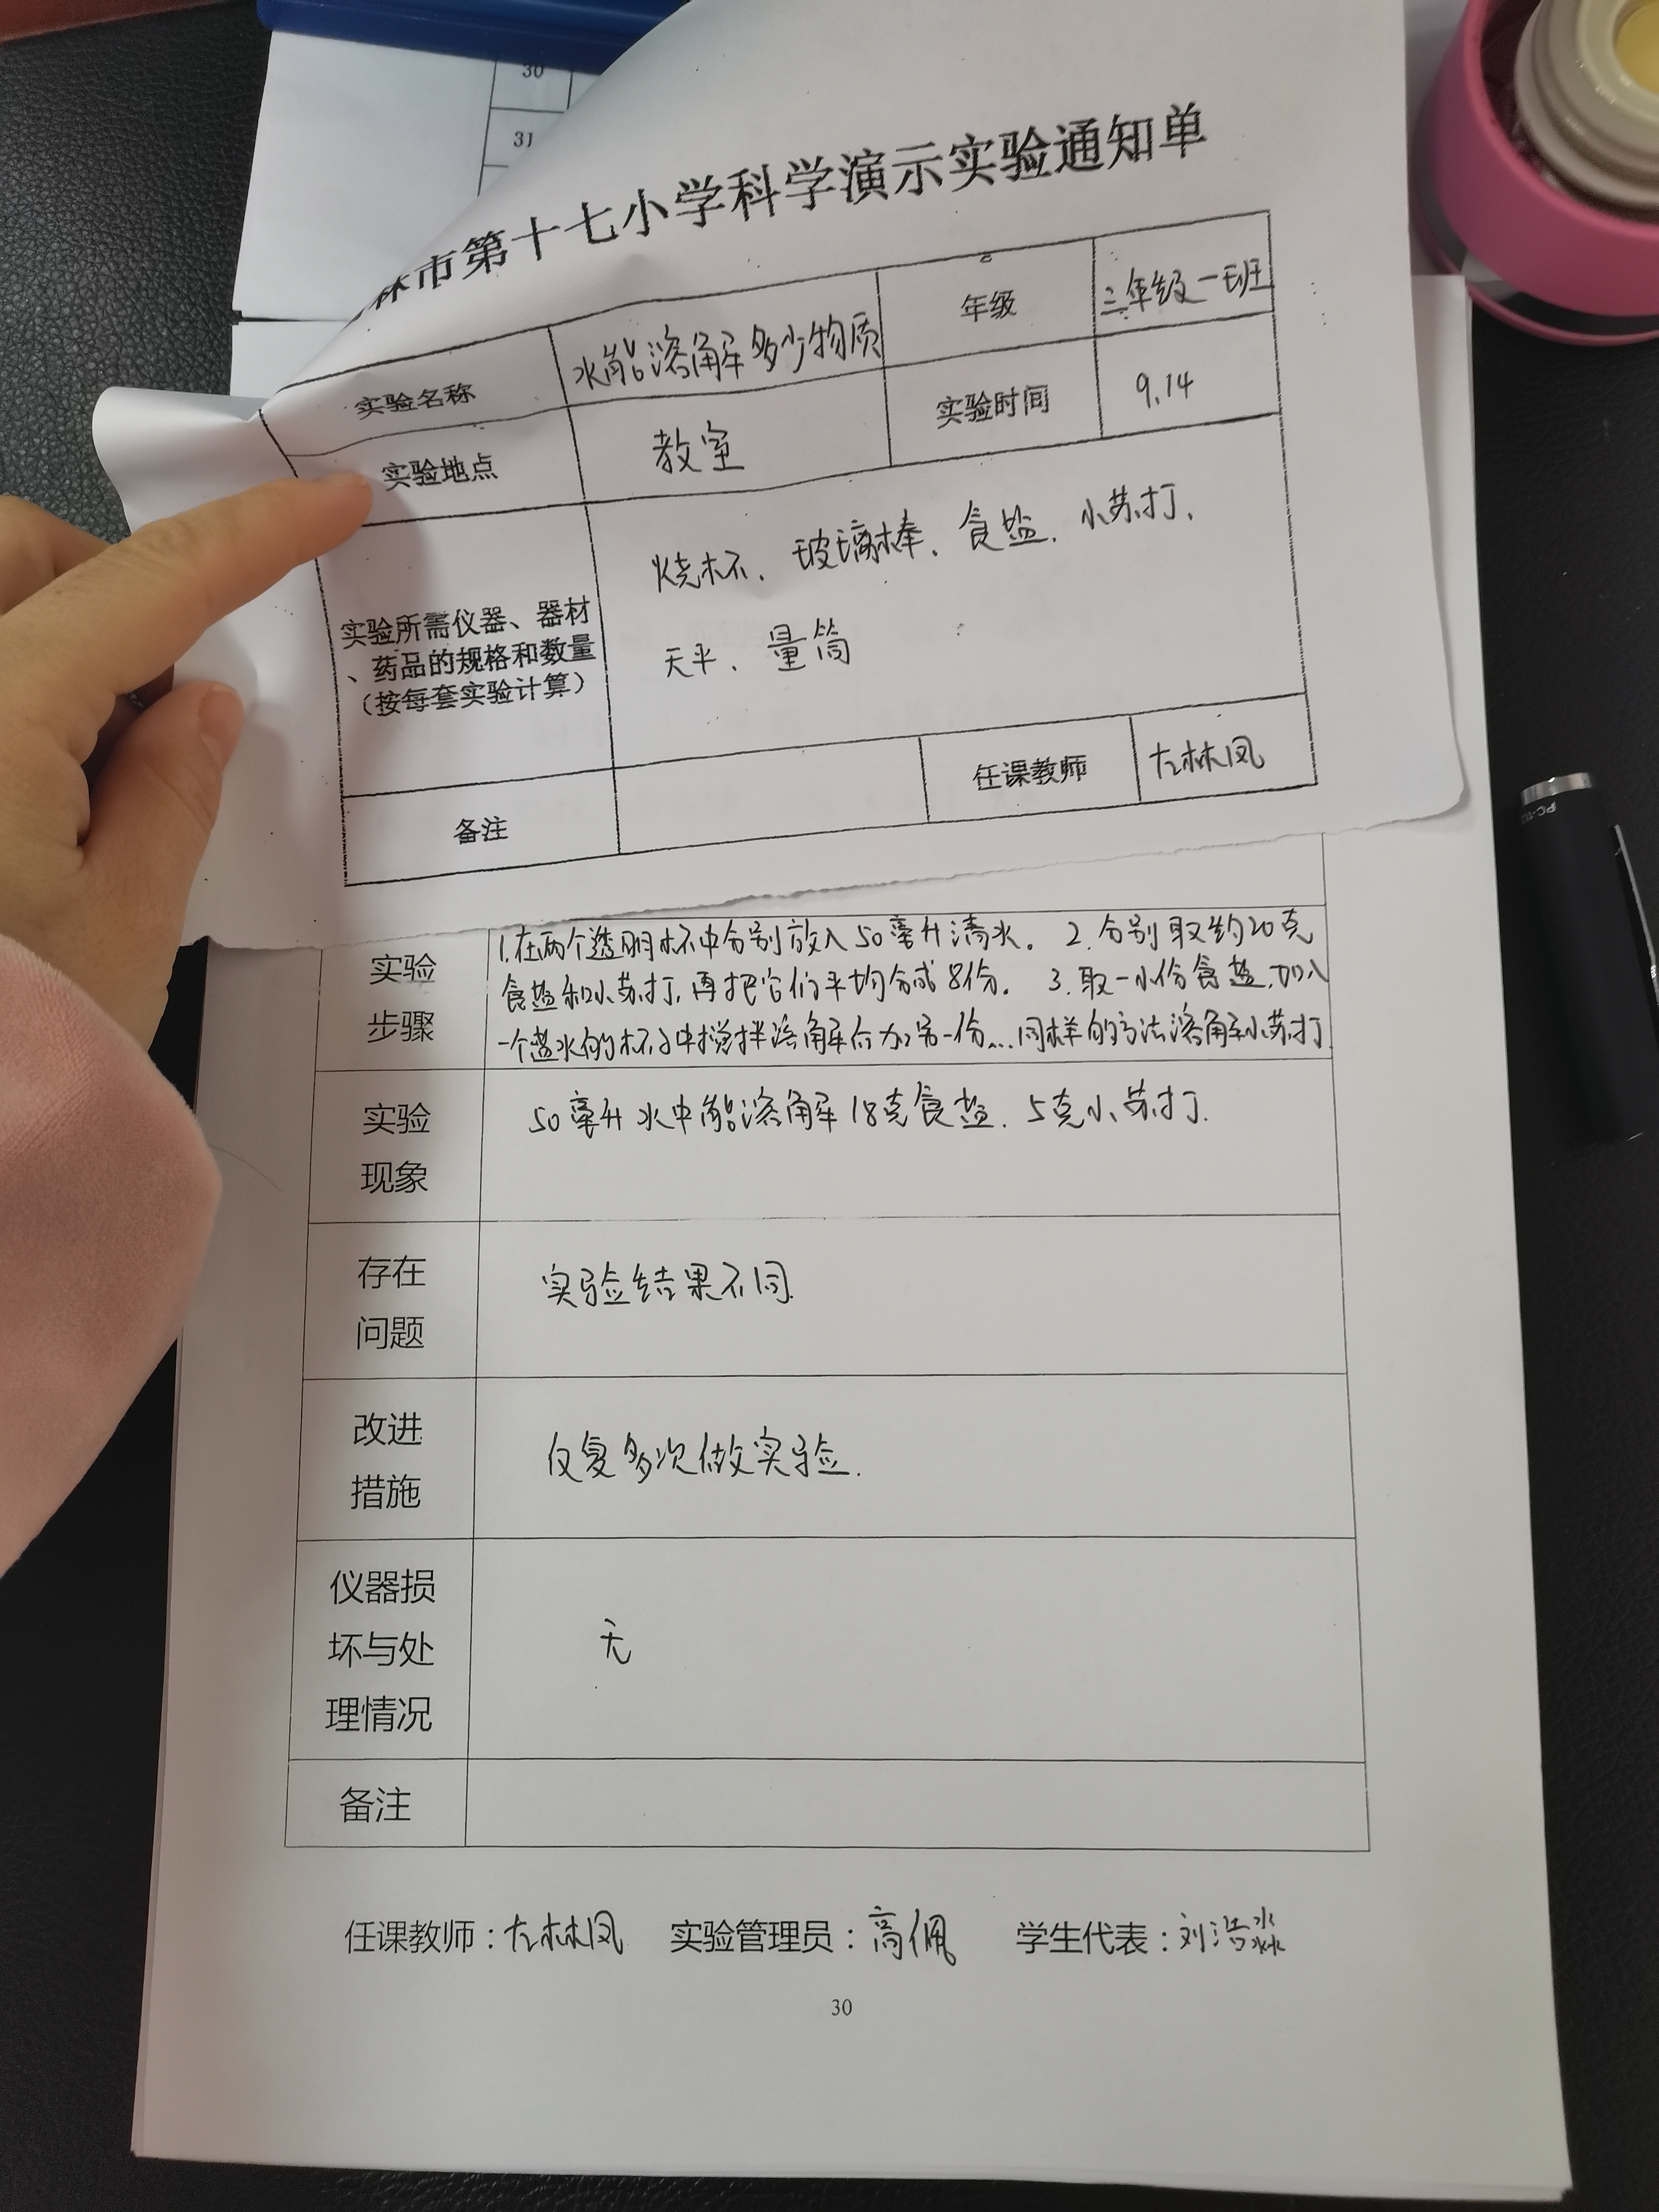 30
31
林市第十七小学科学演示实验通知单
实验名称 水能溶解多少物质 年级 三年级一班
实验地点 教室 实验时间 9.14
实验所需仪器、器材
、药品的规格和数量
（按每套实验计算）
烧杯、玻璃棒、食盐、小苏打、
天平、量筒
备注 任课教师 左林凤
实验
步骤
1.在两个透明杯中分别放入50毫升清水。 2.分别取约20克
食盐和小苏打,再把它们平均分成8份。 3.取一小份食盐,加入
一个盛水的杯子中搅拌溶解后加另一份...同样的方法溶解小苏打
实验
现象
50毫升水中能溶解18克食盐、5克小苏打.
存在
问题
实验结果不同.
改进
措施
反复多次做实验.
仪器损
坏与处
理情况
无
备注
任课教师：左林凤 实验管理员：高佩 学生代表：刘浩淼
30